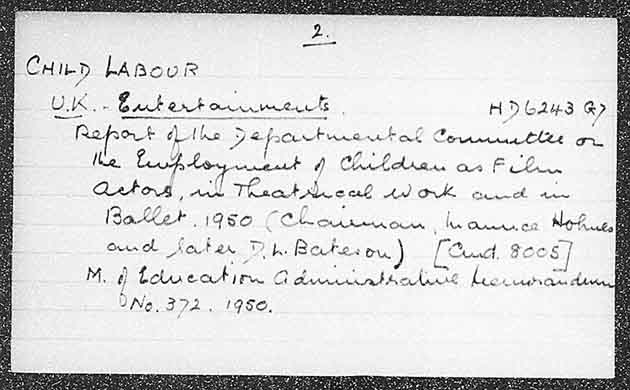 2.
CHILD LABOUR
U.K. - Entertainments. HD6243 G7
Report of the Departmental Committee on
the Employment of Children as Film
Actors, in Theatrical Work and in
Ballet. 1950 (Chairman, Maurice Holmes
and later D. L. Bateson) [Cmd. 8005]
M. of Education Administrative Memorandum
No. 372. 1950.